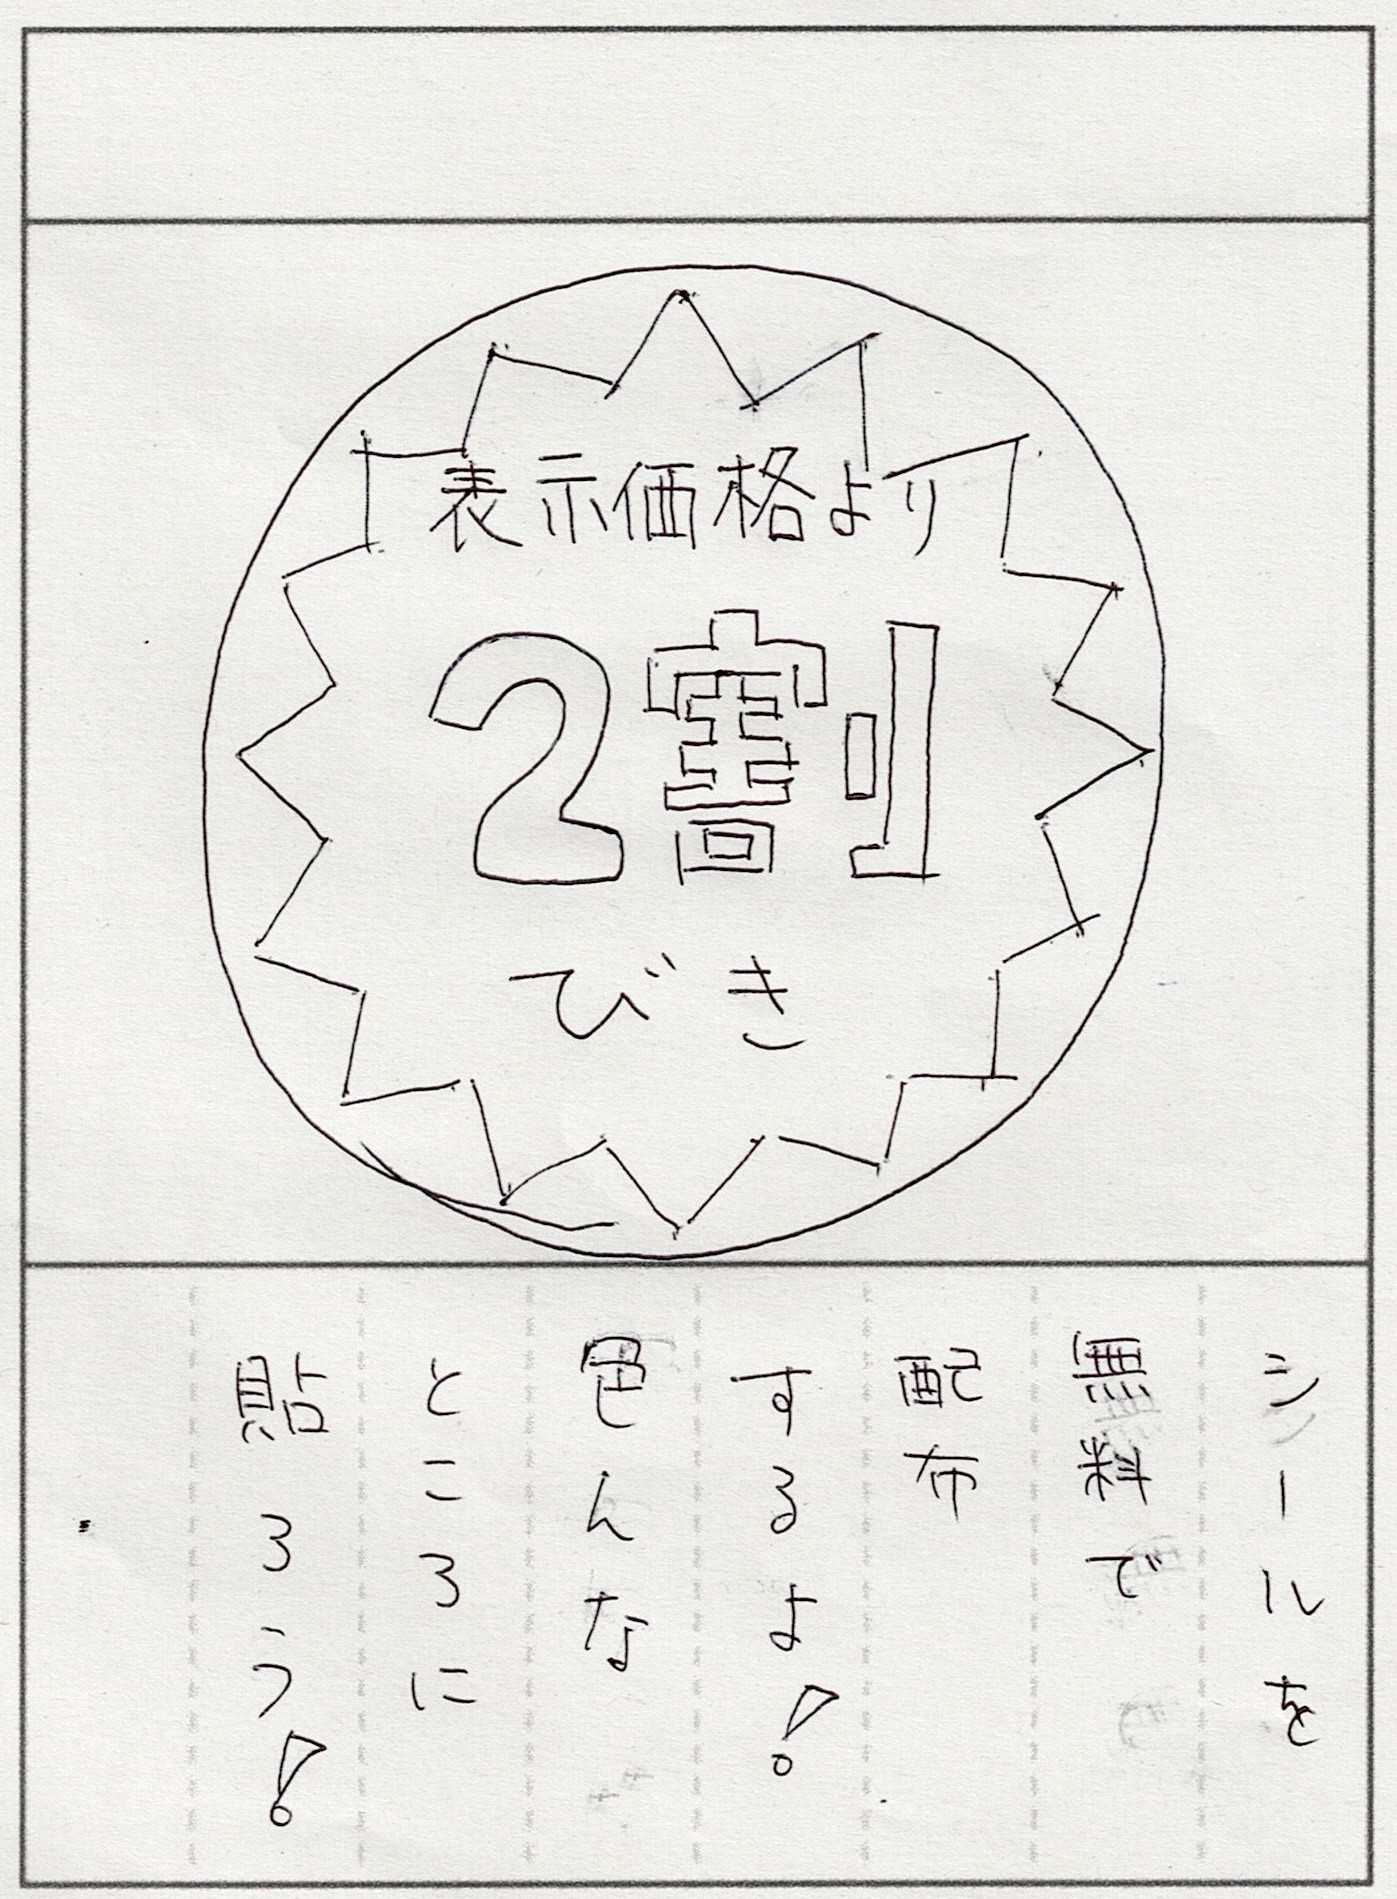 表示価格より
2割
びき
シールを
無料で
配布
するよ！
色んな
ところに
貼ろう！